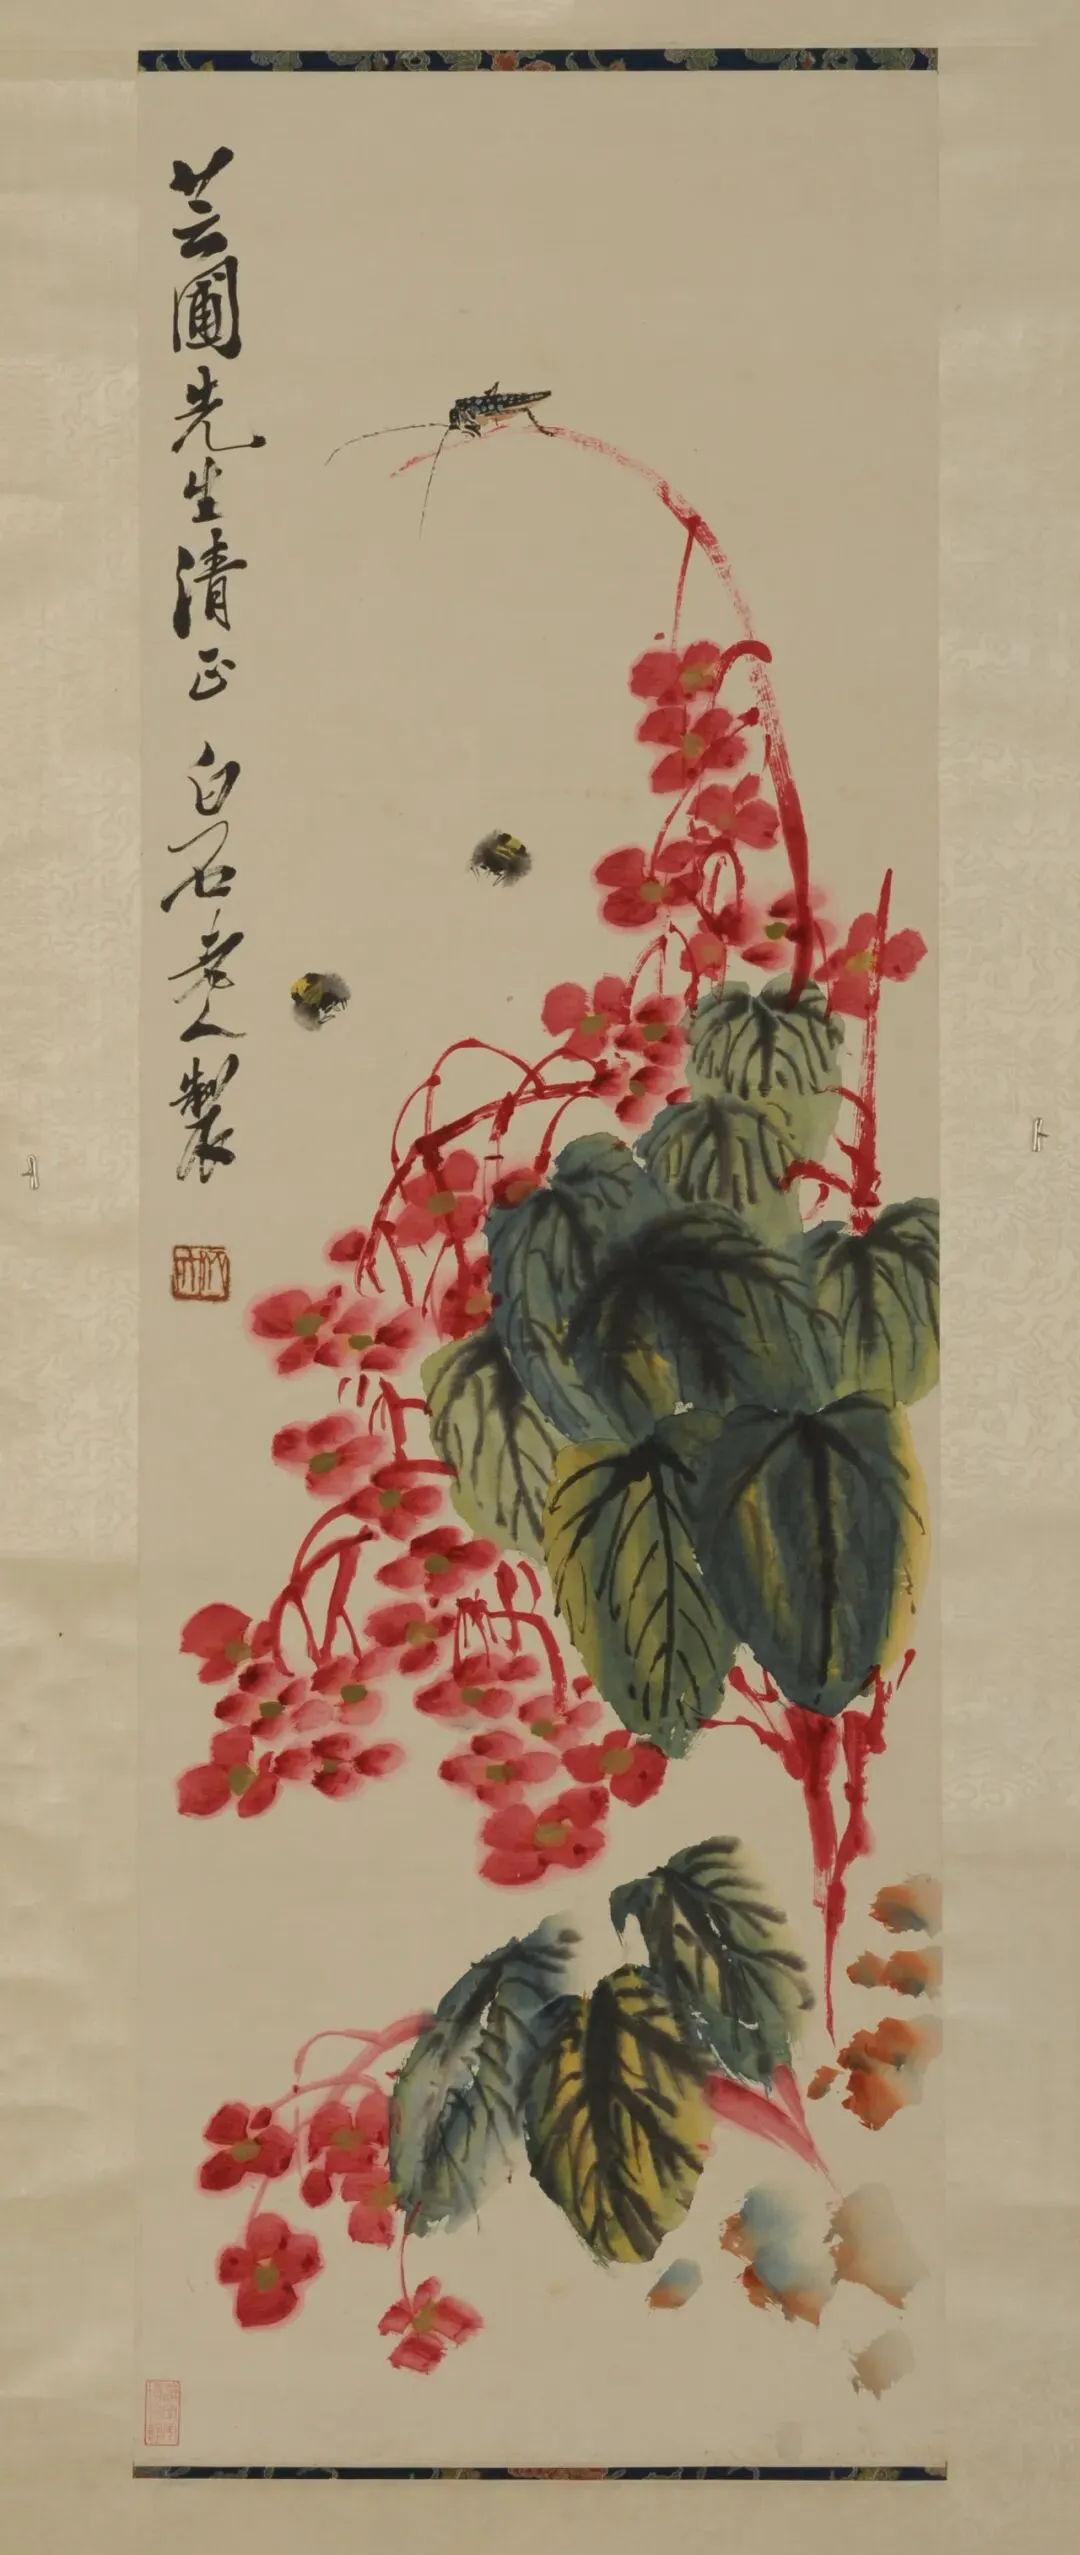 芸圃先生清正 白石老人製